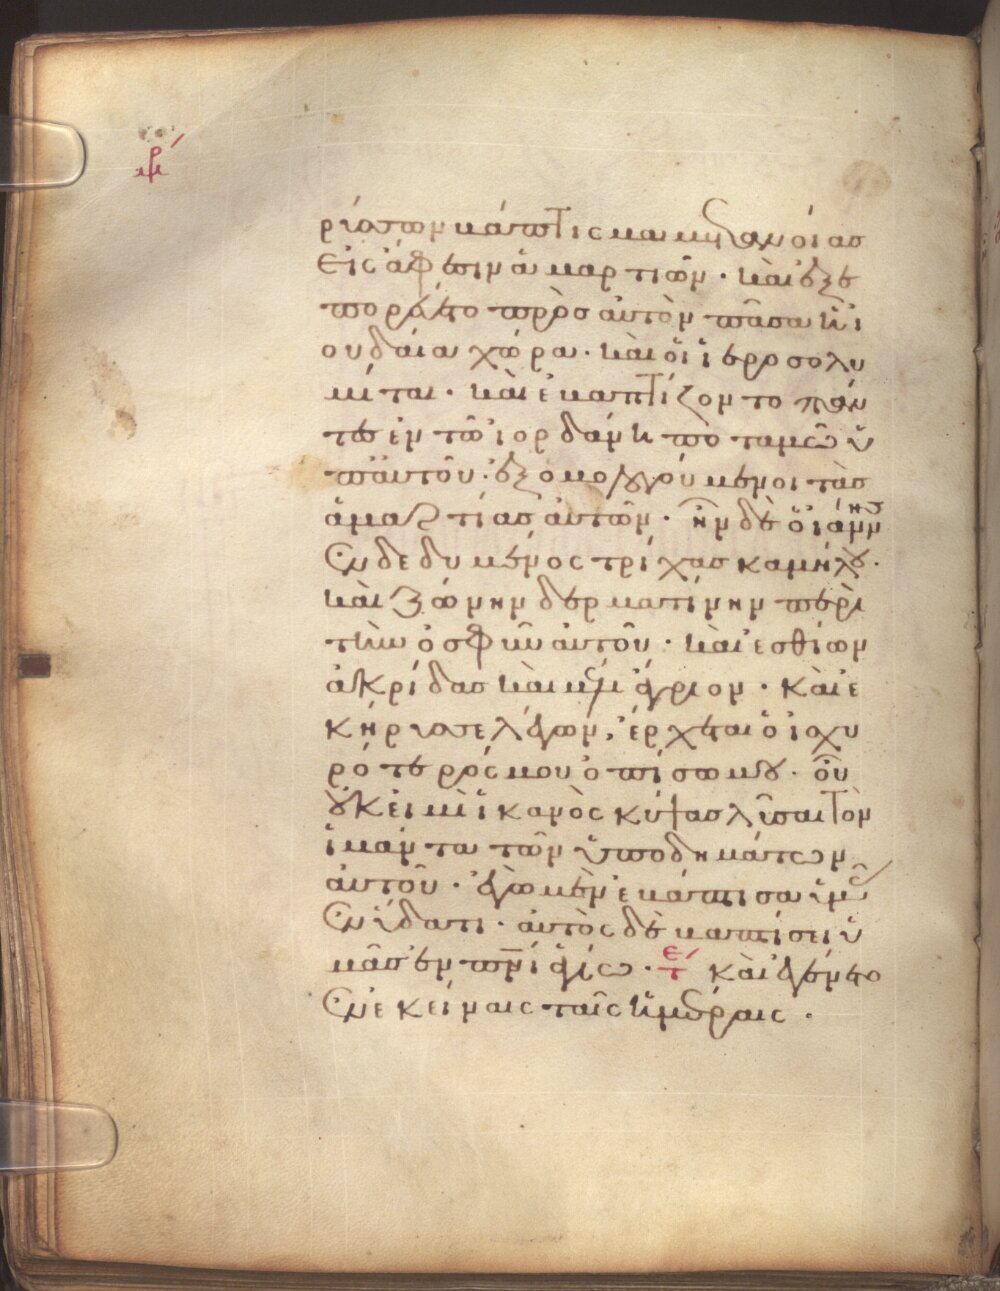 ρύσσων βάπτισμα μετανοίας
εἰς ἄφεσιν ἁμαρτιῶν · καὶ ἐξε
πορεύετο πρὸς αὐτὸν πᾶσα ἡ ἰ
ουδαία χώρα · καὶ οἱ ἱεροσολυ
μίται · καὶ ἐβαπτίζοντο πάν
τες ἐν τῶ ἰορδάνη ποταμῶ ὑ
π᾽ αὐτοῦ · ἐξομολογούμενοι τὰς
ἁμαρτίας αὐτῶν · ἦν δὲ ὁ ἰωάννης
ἐνδεδυμένος τρίχας καμήλου ·
καὶ ζώνην δερματίνην περὶ
τὴν ὀσφὺν αὐτοῦ · καὶ ἐσθίων
ἀκρίδας καὶ μέλι ἄγριον · καὶ ἐ
κήρυσσε λέγων, ἔρχεται ὁ ἰσχυ
ρότερός μου ὀπίσω μου · οὗ
οὐκ εἰμὶ ἱκανὸς κύψας λῦσαι τὸν
ἱμάντα τῶν ὑποδημάτων
αὐτοῦ · ἐγὼ μὲν ἐβάπτισα ὑμᾶς
ἐν ὕδατι · αὐτὸς δὲ βαπτίσει ὑ
μᾶς ἐν πνι ἁγίω · τε καὶ ἐγένετο
ἐν ἐκείναις ταῖς ἡμέραις ·